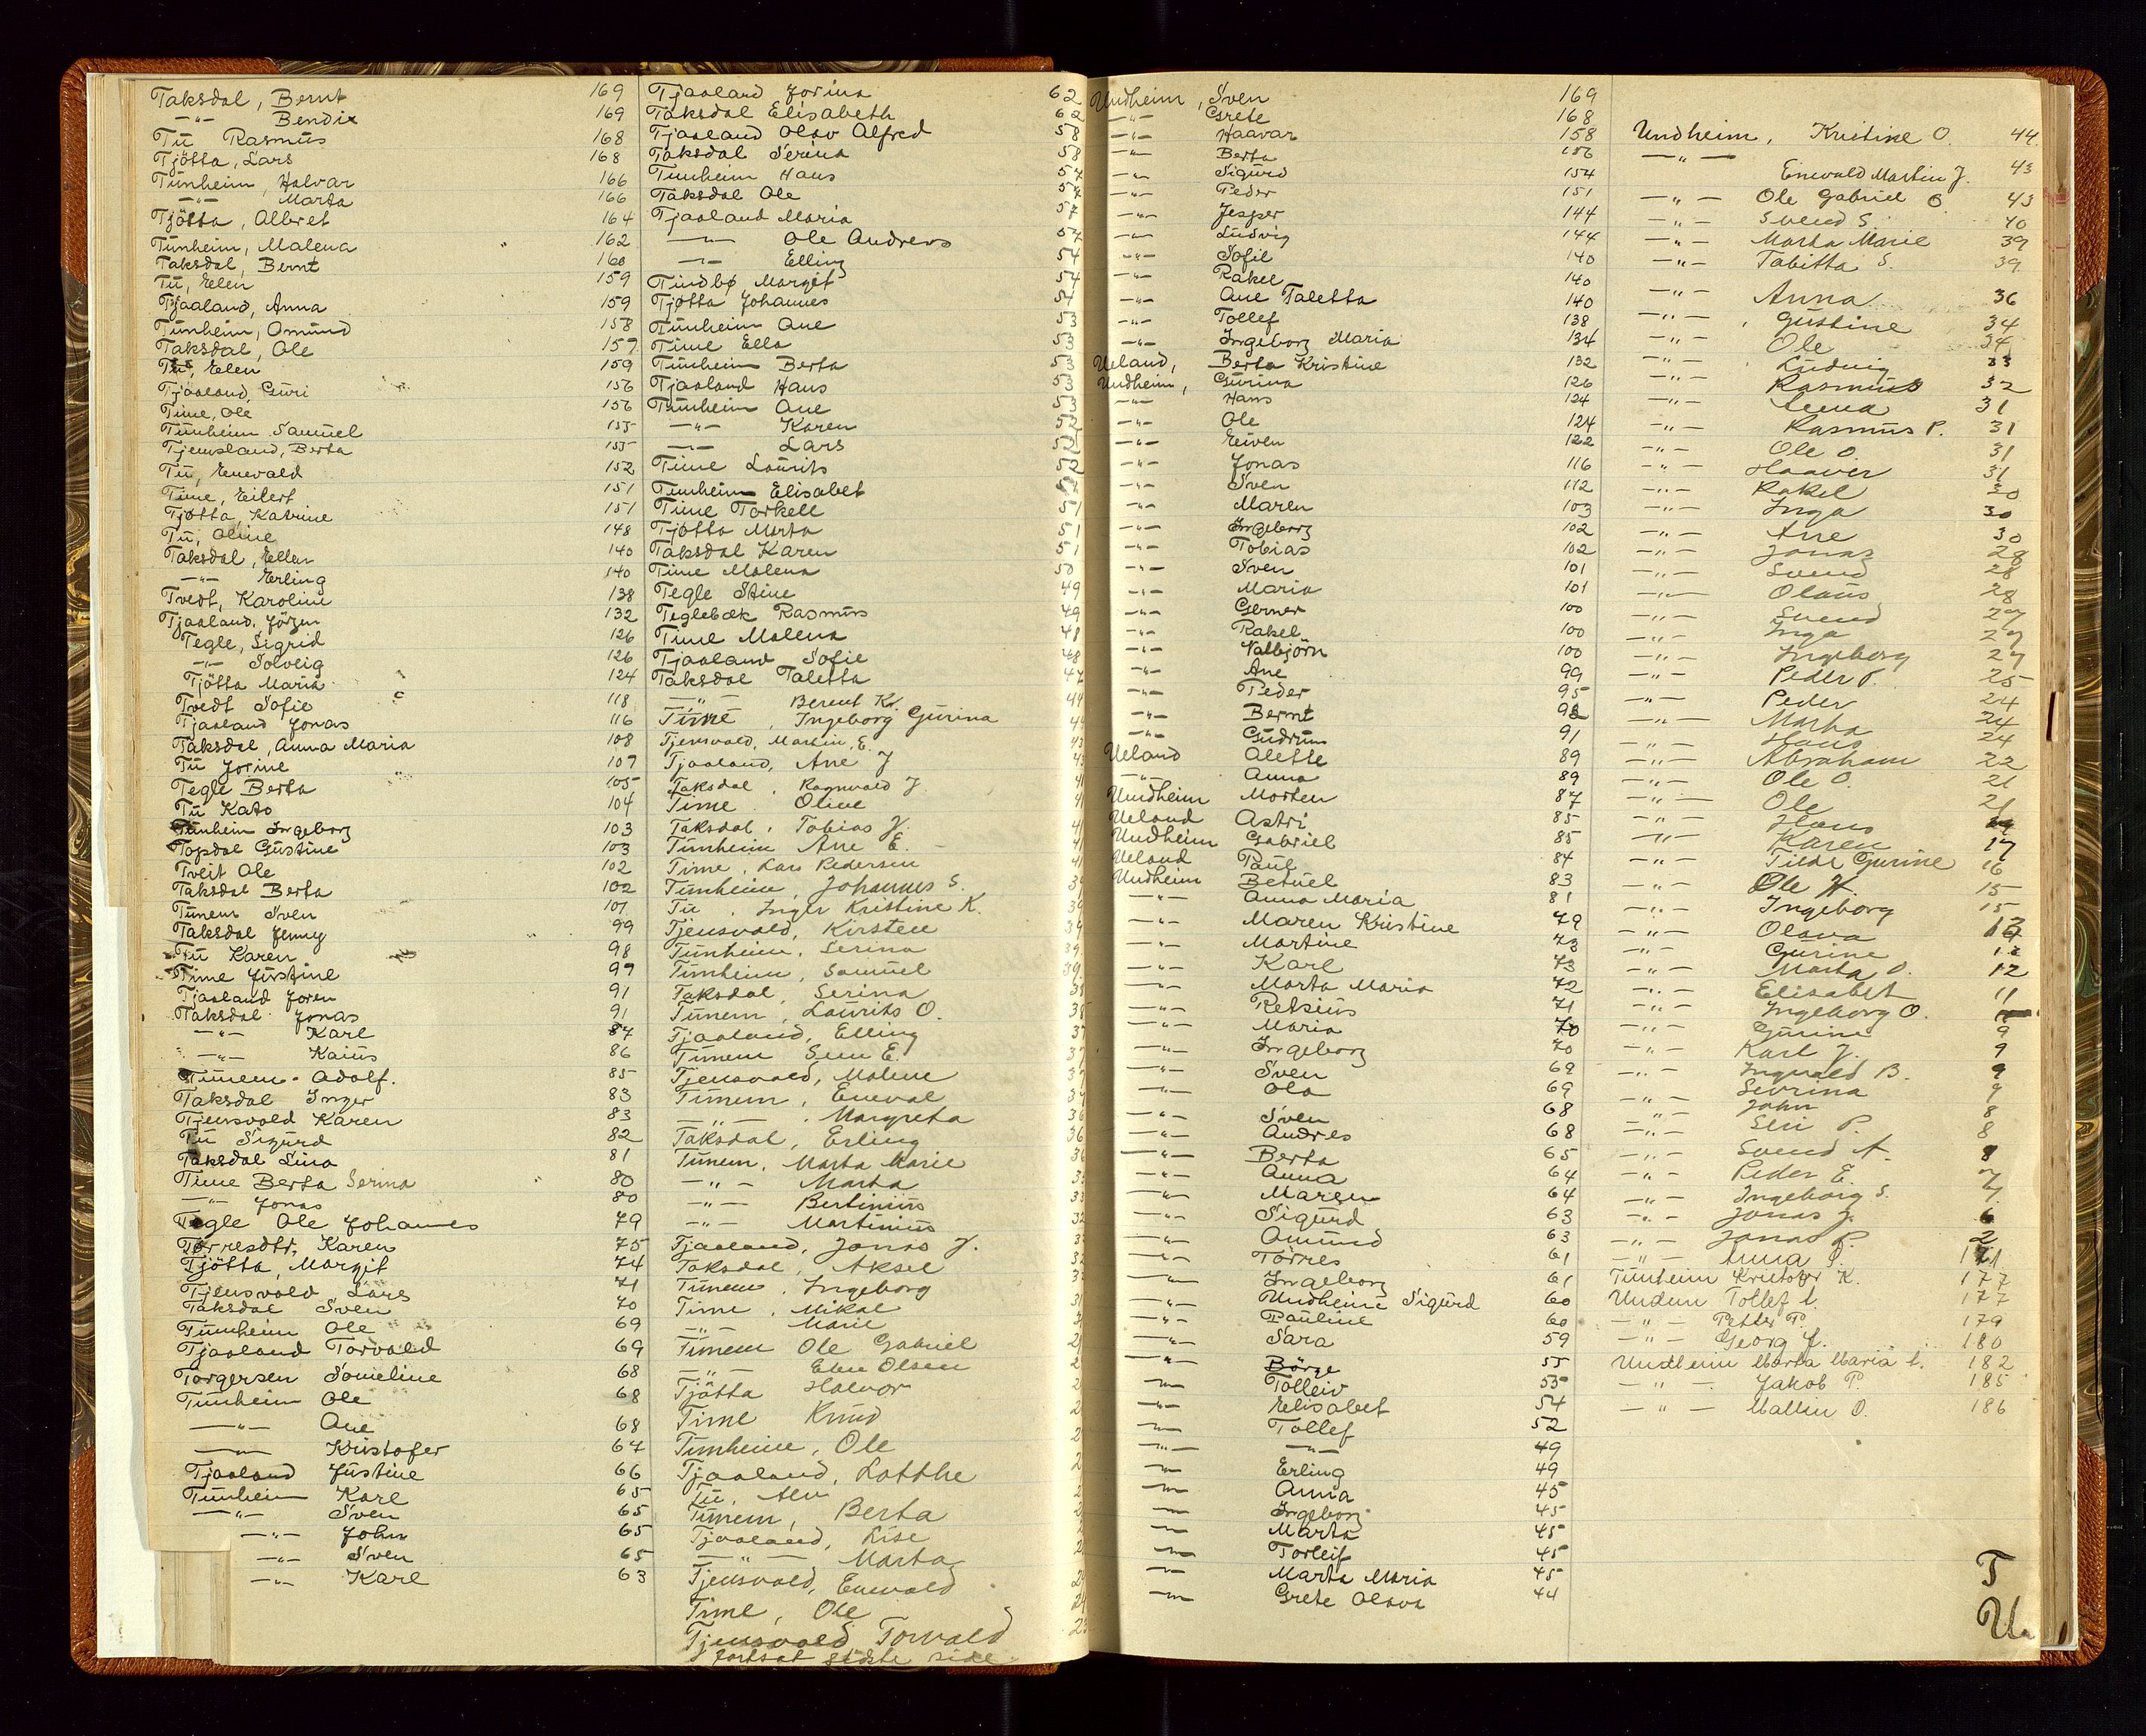 Taksdal, Bernt 169
—"— Bendix 169
Tu Rasmus 168
Tjötta, Lars 168
Tunheim, Halvar 166
—"— Marta 166
Tjötta, Albret 164
Tunheim, Malena 162
Taksdal, Bernt 160
Tu, Elen 159
Tjaaland, Anna 159
Tunheim, Omund 158
Taksdal, Ole 157
Tu, Elen 159
Tjaaland, Guri 156
Time, Ole 156
Tunheim Samuel 155
Tjemsland, Berta 155
Tu, Enevald 152
Time, Eilert 151
Tjøtta, Katrine 151
Tu, Oline 148
Taksdal, Ellen 140
—"— Erling 140
Tvedt, Karoline 138
Tjaaland, Jörgen 132
Tegle, Sigrid 126
—"— Solveig 126
Tjötta Maria 124
Tvedt Sofie 118
Tjaaland Jonas 116
Taksdal, Anna Maria 108
Tu Jorine 107
Tegle Berta 105
Tu Kato 104
Tunheim Ingeborg 103
Topdal Gustine 103
Tveit Ole 102
Taksdal Berta 102
Tunem Sven 101
Taksdal Jenny 99
Tu Karen 98
Time Justine 97
Tjaaland Joren 91
Taksdal Jonas 91
—"— Karl 87
—"— Kaius 86
Tunem Adolf. 85
Taksdal Inger 83
Tjensvold Karen 83
Tu Sigurd 82
Taksdal Lina 81
Time Berta Serina 80
—"— Jonas 80
Tegle Ole Johannes 79
Tørresdtr, Karen 75
Tjötta, Margit 74
Tjensvold Lars 71
Taksdal Sven 70
Tunheim Ole 69
Tjaaland Torvald 69
Torgersen Someline 68
Tunheim Ole 68
—"— Ane 68
—"— Kristofer 67
Tjaaland Justine 66
Tunheim Karl 65
—"— Sven 65
—"— John 65
—"— Sven 65
—"— Karl 63
Tjaaland Jorina 62
Taksdal Elisabeth 62
Tjaaland Olav Alfred 58
Taksdal Serina 58
Tunheim Hans 57
Taksdal Ole 57
Tjaaland Maria 57
—"— Ole Andreas 57
—"— Elling 54
Tindbø Margit 54
Tjøtta Johannes 54
Tunheim Ane 53
Time Ella 53
Tunheim Berta 53
Tjaaland Hans 53
Tunheim Ane 53
—"— Karen 52
—"— Lars 52
Time Laurits 52
Tunheim Elisabet 52
Time Torkell 51
Tjøtta Marta 51
Taksdal Karen 51
Time Malena 50
Tegle Stine 49
Teglebæk Rasmus 49
Time Malena 48
Tjaaland Sofie 48
Taksdal Taletta 47
—"— Berent Kr. 44
Time, Ingeborg Gurina 44
Tjensvold, Martin, E. 43
Tjaaland, Ane J 43
Taksdal, Ragnvald J. 41
Time Oline 41
Taksdal, Tobias J. 41
Tunheim Ane E. 41
Time, Lars Pedersen 41
Tunheim, Johannes S. 39
Tu, Inger Kristine K. 39
Tjensvold, Kirsten 39
Tunheim, Serina 39
Tunheim, Samuel 39
Taksdal, Serina 38
Tunem, Laurits O. 38
Tjaaland, Elling 37
Tunem Sven E. 37
Tjensvold, Malene 37
Tunem, Eneval 37
—"— Margreta 36
Taksdal, Erling 36
Tunem, Marta Marie 36
—"— Marta
—"— Bertinius 33
—"— Martinius 32
Tjaaland, Jonas J.
Taksdal, Aksel 32
Tunem, Ingeborg
Time, Mikal 31
—"— Marie
Timem Ole Gabriel
—"— Elen Olsen
Tjötta Halvor
Time Knud
Tunheim, Ole
Tjaaland, Lotthe
Tu, Alv
Tunem, Berta
Tjaaland, Lise
—"— Marta
Tjensvold, Enevald
Time, Ole
Tjensvold Torvald
fortsat sidste side
Undheim, Sven 169
—"— Grete 168
—"— Haavar 158
—"— Berta 156
—"— Sigurd 154
—"— Peder 151
—"— Jesper 144
—"— Ludvig 144
—"— Sofie 140
—"— Rakel 140
—"— Ane Taletta 140
—"— Tollef 138
—"— Ingeborg Maria 134
Ueland, Berta Kristine 132
Undheim, Gurina 126
—"— Hans 124
—"— Ole 124
—"— Eiven 122
—"— Jonas 116
—"— Sven 112
—"— Maren 103
—"— Ingeborg 102
—"— Tobias 102
—"— Sven 101
—"— Maria 101
—"— Gerner 100
—"— Rakel 100
—"— Valbjörn 100
—"— Ane 99
—"— Peder 95
—"— Bernt 92
—"— Gudrun 91
Ueland Alette 89
—"— Anna 89
Undheim Morten 87
Ueland Astri 85
Undheim Gabriel 85
Ueland Paul 84
Undheim Betuel 83
—"— Anna Maria 81
—"— Maren Kristine 79
—"— Martine 73
—"— Karl 73
—"— Marta Maria 72
—"— Retsius 71
—"— Maria 70
—"— Ingeborg 70
—"— Sven 69
—"— Ola 69
—"— Sven 68
—"— Andres 68
—"— Berta 65
—"— Anna 64
—"— Maren 64
—"— Sigurd 63
—"— Omund 63
—"— Torres 61
—"— Ingeborg 61
—"— Undheim Sigurd 60
—"— Pauline 60
—"— Sara 59
—"— Börge 55
—"— Tolleiv 55
—"— Elisabet 54
—"— Tollef 52
—"— —"— 49
—"— Erling 49
—"— Anna 45
—"— Ingeborg 45
—"— Marta 45
—"— Torleif 45
—"— Marta Maria 45
—"— Grete Olava 44
Undheim, Kristine O. 44
—"— Enevald Martin J. 43
—"— Ole Gabriel O 43
—"— Svend S. 40
—"— Marta Marie 39
—"— Tabitta S. 39
—"— Anna 36
—"— Gustine 34
—"— Ole 34
—"— Ludvig 33
—"— Rasmus 32
—"— Anna 31
—"— Rasmus P. 31
—"— Ole O. 31
—"— Haaver 31
—"— Rakel 30
—"— Inga 30
—"— Ane 30
—"— Jonas 28
—"— Svend 28
—"— Olaus 28
—"— Svend 27
—"— Inga 27
—"— Ingeborg 27
—"— Peder P. 25
—"— Peder 24
—"— Martha 24
—"— Hans 24
—"— Abraham 22
—"— Ole O. 21
—"— Ole 21
—"— Hans
—"— Karen 17
—"— Tilde Gurine 16
—"— Ole H. 15
—"— Ingeborg 15
—"— Olava 13
—"— Gurine 12
—"— Marta O. 12
—"— Elisabet 11
—"— Ingeborg O.
—"— Gurine 9
—"— Karl J. 9
—"— Ingvald B. 9
—"— Sevrina 9
—"— John 8
—"— Seri P. 8
—"— Svend A. 8
—"— Peder E. 7
—"— Ingeborg S. 7
—"— Jonas J. 6
—"— Jonas P. 2
—"— Anna O. 171
Tunheim Kristofer K. 177
Undem Tollef t. 177
—"— Petter P. 179
—"— Georg J. 180
Undheim Marta Maria t. 182
—"— Jakob P. 185
—"— Mallin O. 186
T
U